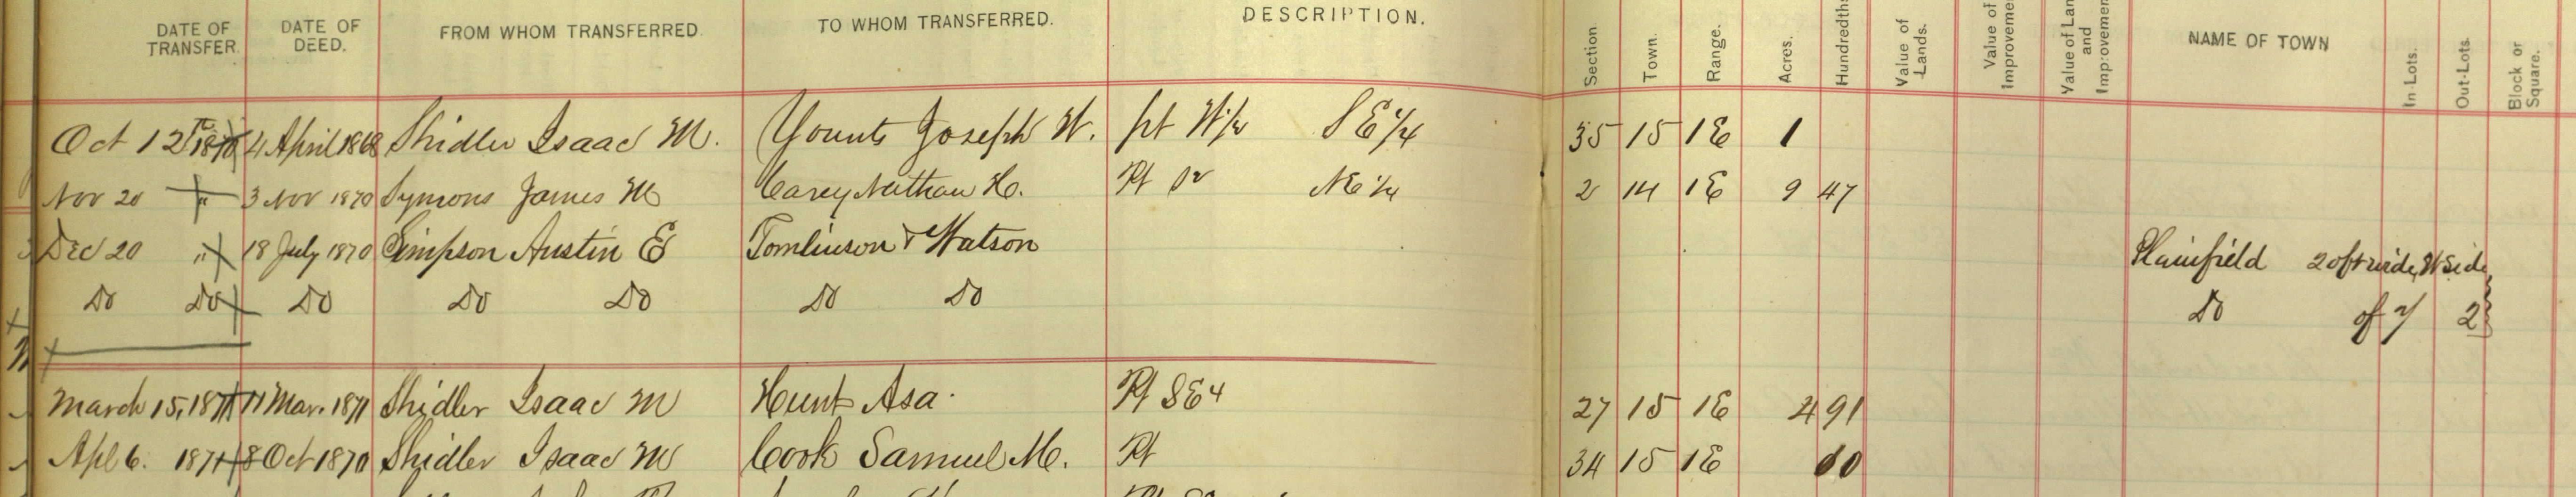 DATE OF TRANSFER. DATE OF DEED. FROM WHOM TRANSFERRED. TO WHOM TRANSFERRED. DESCRIPTION. Section Town. Range. Acres. Hundredths Value of Lands. Value of Improvemen Value of Lan and Improvemen NAME OF TOWN In-Lots. Out-Lots. Block or Square.
Oct 12th 1870 4 April 1868 Shidler Isaac M. Younts Joseph W. pt W½ SE¼ 35 15 1E 1
Nov 20 " 3 Nov 1870 Symons James M Carey Nathan H. Pt NE¼ 2 14 1E 9 47
Dec 20 " 18 July 1870 Simpson Austin E Tomlinson & Watson Plainfield 20 ft wide, W Side
Do Do Do Do Do Do Do Do of 2
March 15, 1871 11 Mar. 1871 Shidler Isaac M Hunt Asa Pt SE4 27 15 1E 4 91
Apl 6. 1871 8 Oct 1870 Shidler Isaac M Cook Samuel M. Pt 34 15 1E 60